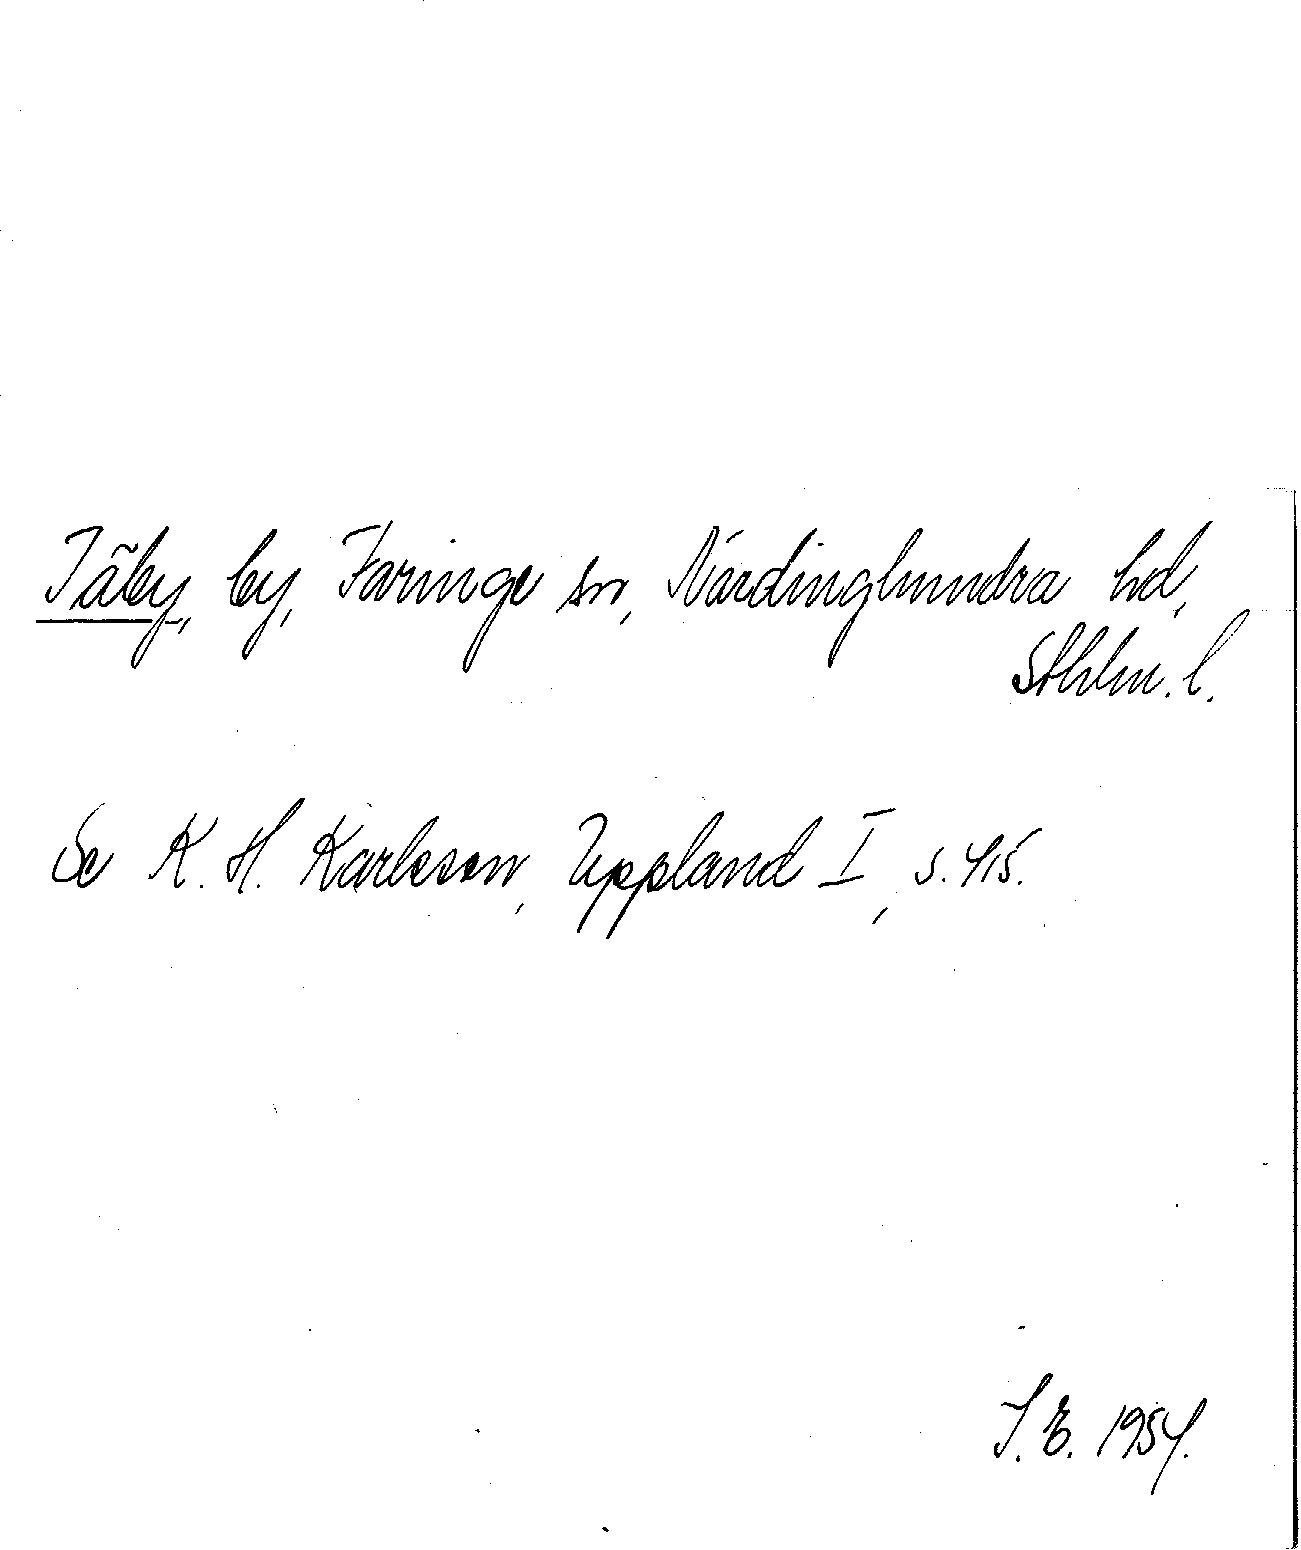 Täby, by, Faringe sn, Närdinghundra hd,
Sthlm. l.
Se K. H. Karlsson, Uppland I, s. 415.
S. E. 1954.